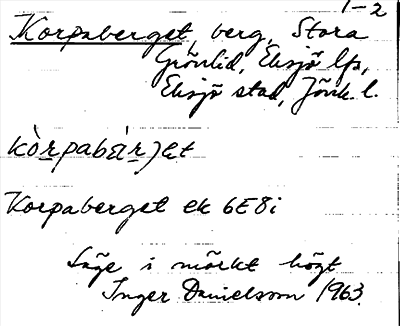 1-2
Korpaberget, berg, Stora
Grönlid, Eksjö lfs,
Eksjö stad, Jönk. l.
Korpaberget ek 6E8i
Läge i mörkt högt
Inger Danielsson 1963.